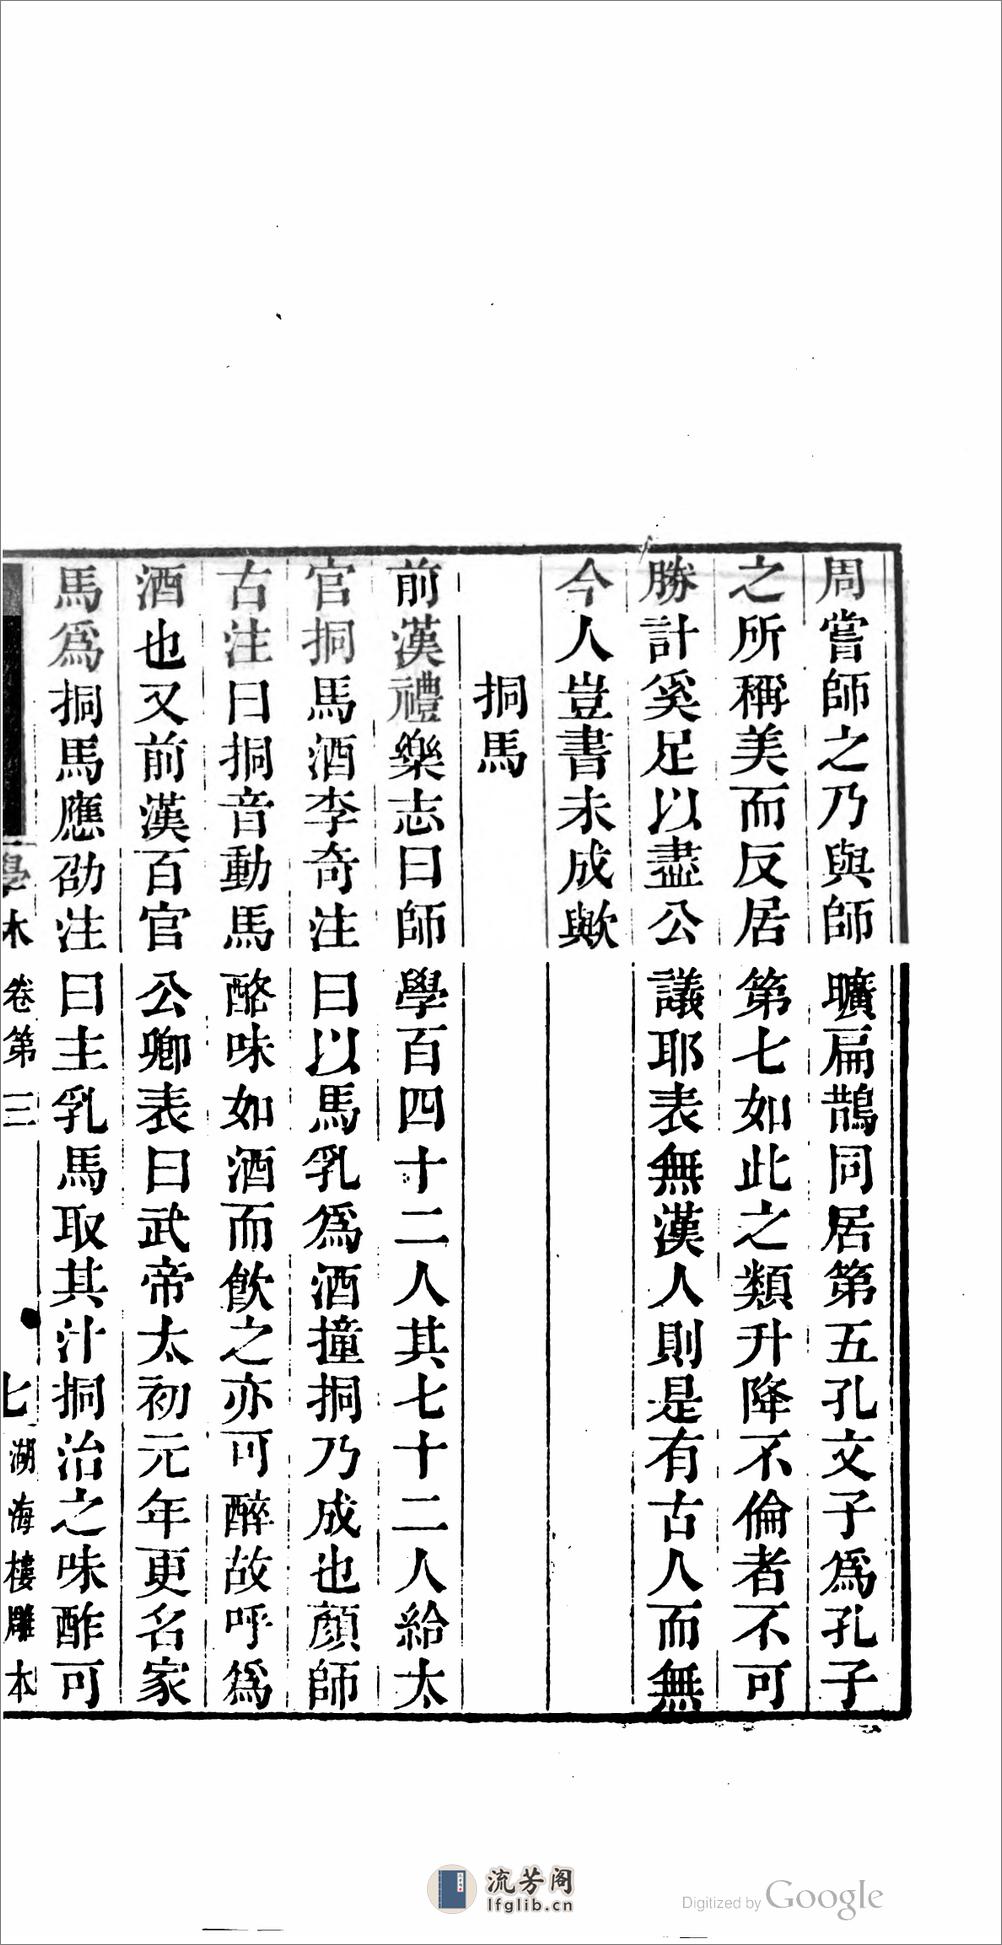 周嘗師之乃與師曠扁鵲同居第五孔文子爲孔子
之所稱美而反居第七如此之類升降不倫者不可
勝計奚足以盡公議耶表無漢人則是有古人而無
今人豈書未成歟
挏馬
前漢禮樂志曰師學百四十二人其七十二人給太
官挏馬酒李奇注曰以馬乳爲酒撞挏乃成也顏師
古注曰挏音動馬酪味如酒而飲之亦可醉故呼爲
酒也又前漢百官公卿表曰武帝太初元年更名家
馬爲挏馬應劭注曰主乳馬取其汁挏治之味酢可
學林 卷第三 七 湖海樓雕本
流芳阁
lfglib.cn
Digitized by Google